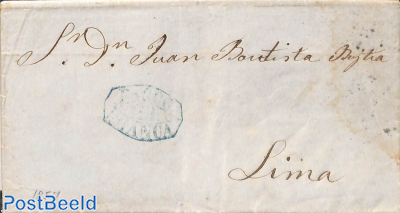 Sr. Dn. Juan Bautista
ARICA
Lima
1857
PostBeeld